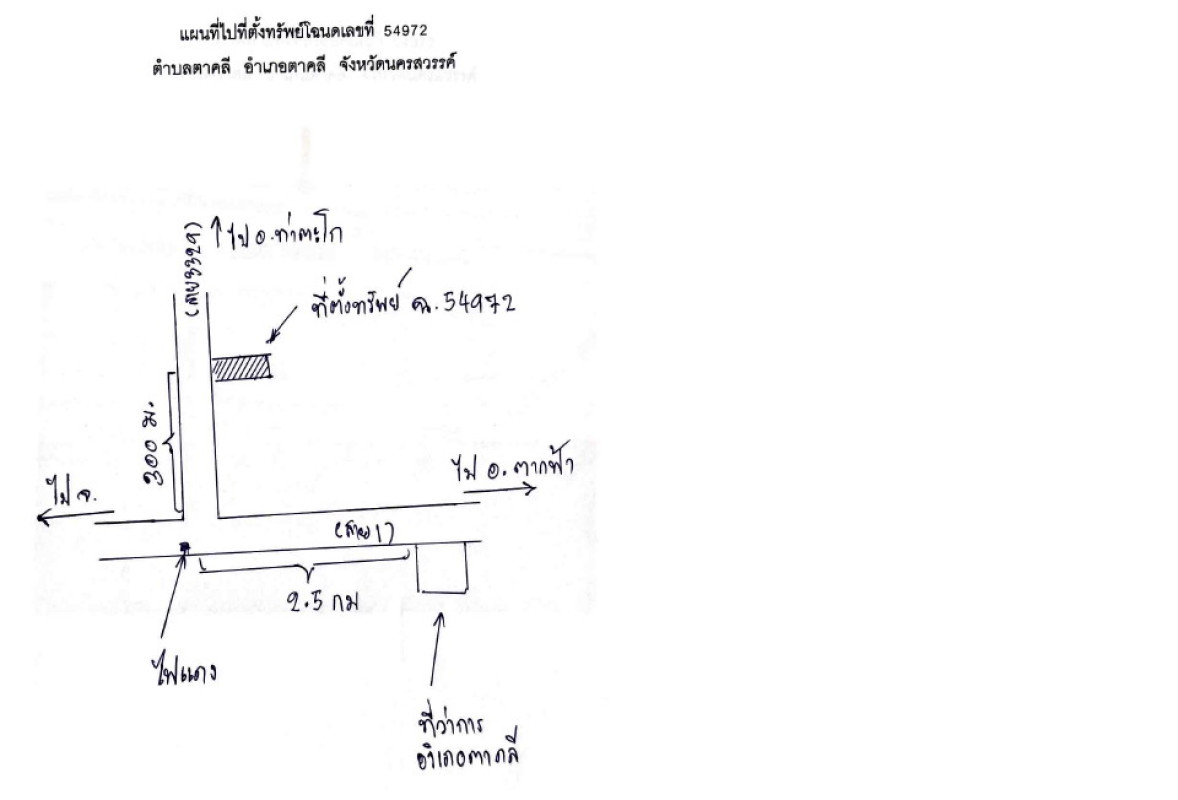 แผนที่ไปที่ตั้งทรัพย์โฉนดเลขที่ 54972
ตำบลตาคลี อำเภอตาคลี จังหวัดนครสวรรค์
(สาย3329)
ไป อ.ท่าตะโก
ที่ตั้งทรัพย์ ฉ. 54972
300 ม.
ไป อ. ตากฟ้า
ไป จ.
(สาย 1)
2.5 กม
ไฟแดง
ที่ว่าการ
อำเภอตาคลี